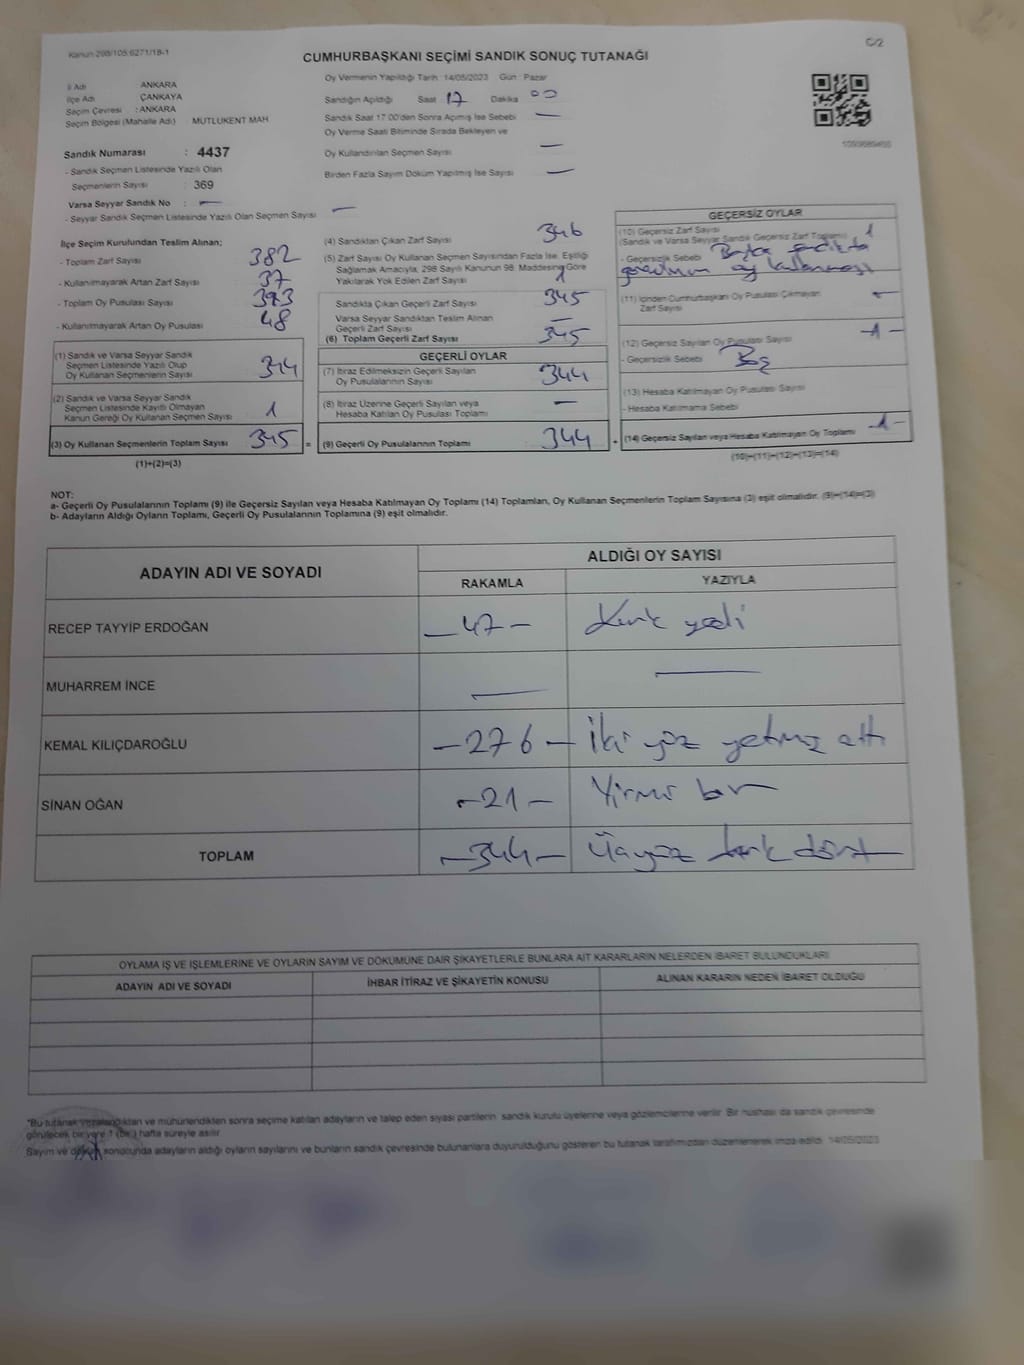 Kanun 298/105 6271/18-1
C/2
CUMHURBAŞKANI SEÇİMİ SANDIK SONUÇ TUTANAĞI
İl Adı ANKARA
İlçe Adı ÇANKAYA
Seçim Çevresi : ANKARA
Seçim Bölgesi (Mahalle Adı) : MUTLUKENT MAH
Oy Vermenin Yapıldığı Tarih : 14/05/2023 Gün : Pazar
Sandığın Açıldığı Saat 17 Dakika 00
Sandık Saat 17:00'den Sonra Açımış İse Sebebi —
Oy Verme Saati Bitiminde Sırada Bekleyen ve
Oy Kullandırılan Seçmen Sayısı —
Birden Fazla Sayım Döküm Yapılmış İse Sayısı —
Sandık Numarası : 4437
- Sandık Seçmen Listesinde Yazılı Olan
Seçmenlerin Sayısı : 369
Varsa Seyyar Sandık No : —
- Seyyar Sandık Seçmen Listesinde Yazılı Olan Seçmen Sayısı —
İlçe Seçim Kurulundan Teslim Alınan;
- Toplam Zarf Sayısı 382
- Kullanılmayarak Artan Zarf Sayısı 37
- Toplam Oy Pusulası Sayısı 393
- Kullanılmayarak Artan Oy Pusulası 48
(1) Sandık ve Varsa Seyyar Sandık
Seçmen Listesinde Yazılı Olup
Oy Kullanan Seçmenlerin Sayısı 344
(2) Sandık ve Varsa Seyyar Sandık
Seçmen Listesinde Kayıtlı Olmayan
Kanun Gereği Oy Kullanan Seçmen Sayısı 1
(3) Oy Kullanan Seçmenlerin Toplam Sayısı 345 =
(1)+(2)=(3)
(4) Sandıktan Çıkan Zarf Sayısı 346
(5) Zarf Sayısı Oy Kullanan Seçmen Sayısından Fazla İse, Eşitliği
Sağlamak Amacıyla, 298 Sayılı Kanunun 98. Maddesine Göre
Yakılarak Yok Edilen Zarf Sayısı 1
Sandıkta Çıkan Geçerli Zarf Sayısı 345
Varsa Seyyar Sandıktan Teslim Alınan
Geçerli Zarf Sayısı —
(6) Toplam Geçerli Zarf Sayısı 345
GEÇERLİ OYLAR
(7) İtiraz Edilmeksizin Geçerli Sayılan
Oy Pusulalarının Sayısı 344
(8) İtiraz Üzerine Geçerli Sayılan veya
Hesaba Katılan Oy Pusulası Toplamı —
(9) Geçerli Oy Pusulalarının Toplamı 344 +
GEÇERSİZ OYLAR
(10) Geçersiz Zarf Sayısı
(Sandık ve Varsa Seyyar Sandık Geçersiz Zarf Toplamı) 1
- Geçersizlik Sebebi Başka sandıkta
görevlinin oy kullanması
(11) İçinden Cumhurbaşkanı Oy Pusulası Çıkmayan
Zarf Sayısı —
(12) Geçersiz Sayılan Oy Pusulası Sayısı -1-
- Geçersizlik Sebebi Boş
(13) Hesaba Katılmayan Oy Pusulası Sayısı
- Hesaba Katılmama Sebebi
(14) Geçersiz Sayılan veya Hesaba Katılmayan Oy Toplamı -1-
(10)+(11)+(12)+(13)=(14)
NOT:
a- Geçerli Oy Pusulalarının Toplamı (9) ile Geçersiz Sayılan veya Hesaba Katılmayan Oy Toplamı (14) Toplamları, Oy Kullanan Seçmenlerin Toplam Sayısına (3) eşit olmalıdır. (9)+(14)=(3)
b- Adayların Aldığı Oyların Toplamı, Geçerli Oy Pusulalarının Toplamına (9) eşit olmalıdır.
ADAYIN ADI VE SOYADI
ALDIĞI OY SAYISI
RAKAMLA YAZIYLA
RECEP TAYYİP ERDOĞAN —47— Kırk yedi
MUHARREM İNCE — —
KEMAL KILIÇDAROĞLU —276— İki yüz yetmiş altı
SİNAN OĞAN —21— Yirmi bir
TOPLAM —344— Üçyüz kırk dört
OYLAMA İŞ VE İŞLEMLERİNE VE OYLARIN SAYIM VE DÖKÜMÜNE DAİR ŞİKAYETLERLE BUNLARA AİT KARARLARIN NELERDEN İBARET BULUNDUKLARI
ADAYIN ADI VE SOYADI İHBAR İTİRAZ VE ŞİKAYETİN KONUSU ALINAN KARARIN NEDEN İBARET OLDUĞU
*Bu tutanak imzalandıktan ve mühürlendikten sonra seçime katılan adayların ve talep eden siyasi partilerin sandık kurulu üyelerine veya gözlemcilerine verilir. Bir nüshası da sandık çevresinde
görülecek bir yere 1 (bir) hafta süreyle asılır.
Sayım ve döküm sonucunda adayların aldığı oyların sayılarını ve bunların sandık çevresinde bulunanlara duyurulduğunu gösteren bu tutanak tarafımızdan düzenlenerek imza edildi. 14/05/2023